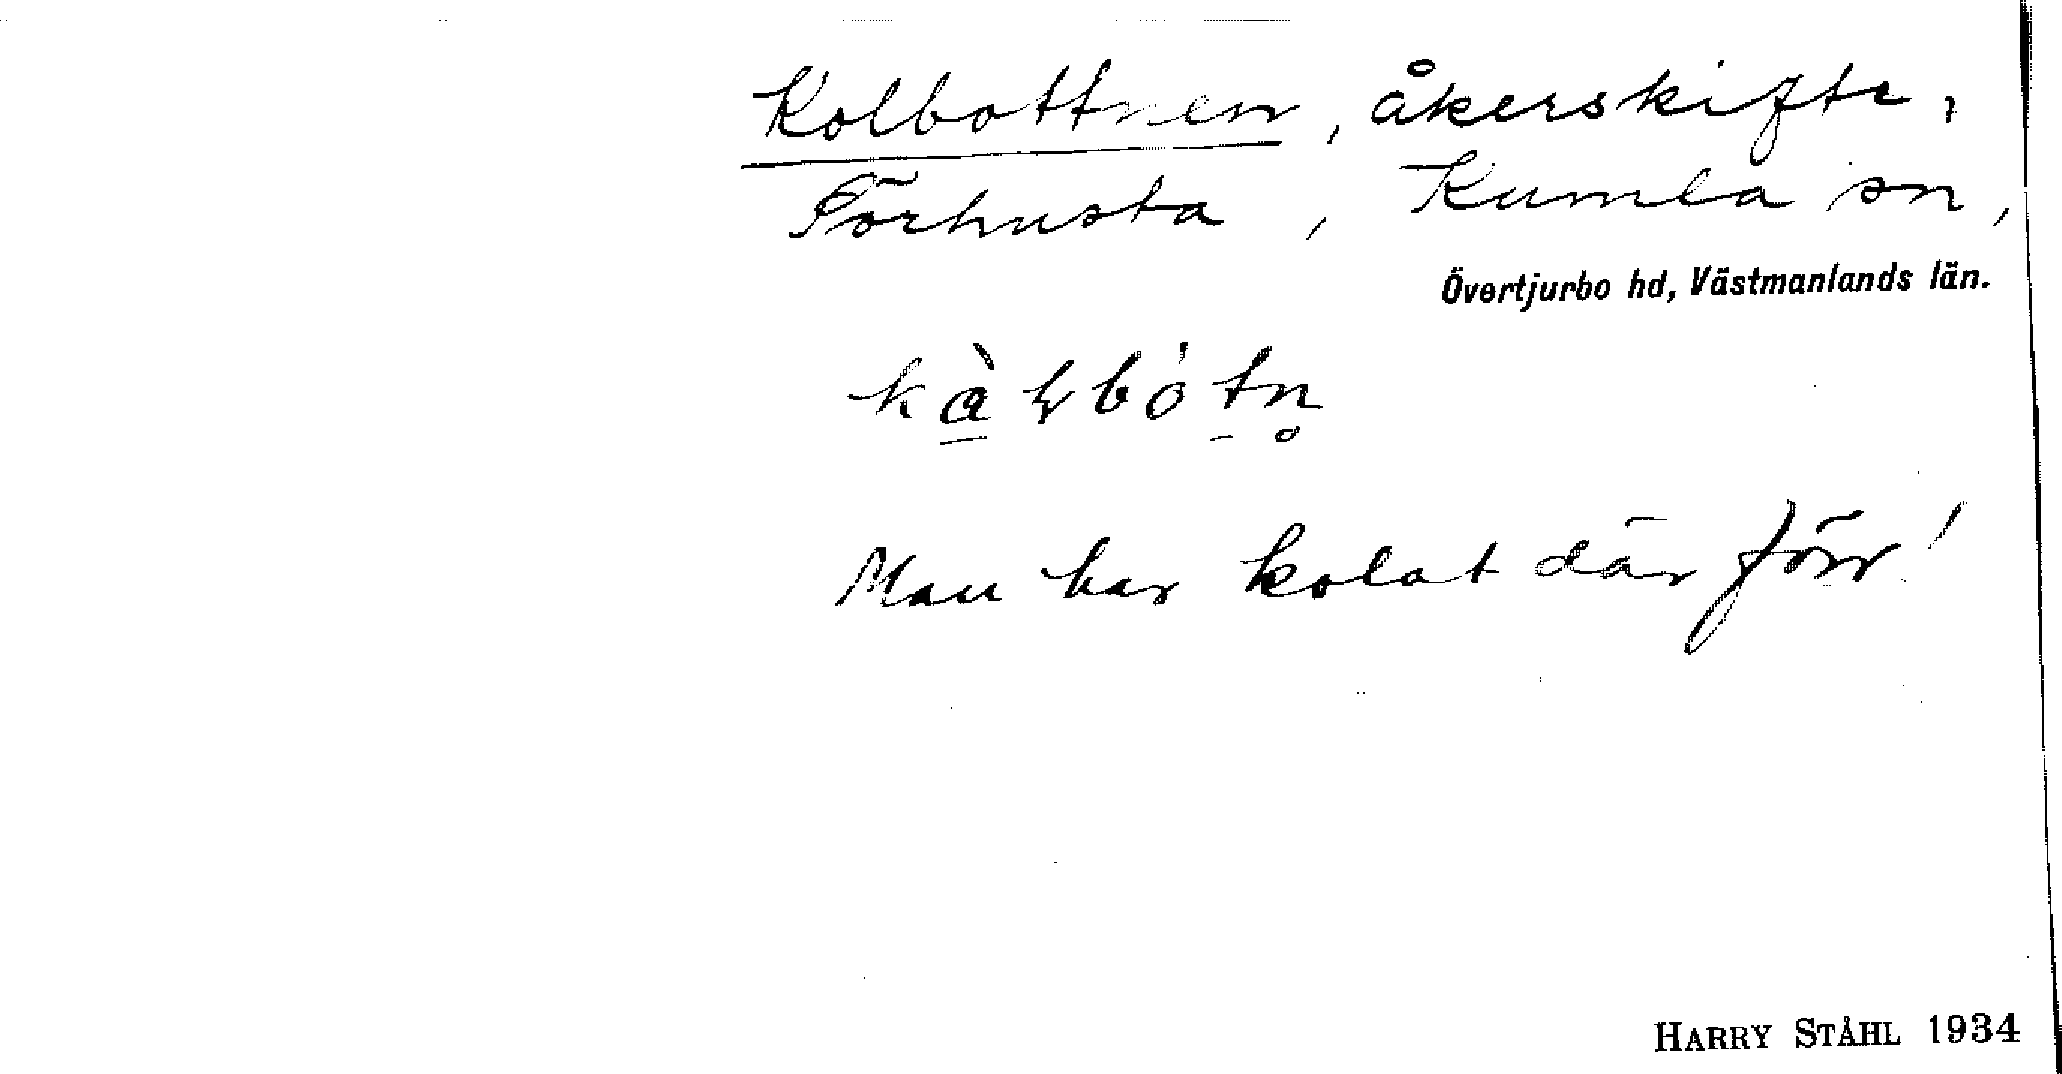 Kolbottnen, åkerskifte,
Forhusta, Kumla sn,
Övertjurbo hd, Västmanlands län.
Man har kolat där förr!
HARRY STÅHL 1934